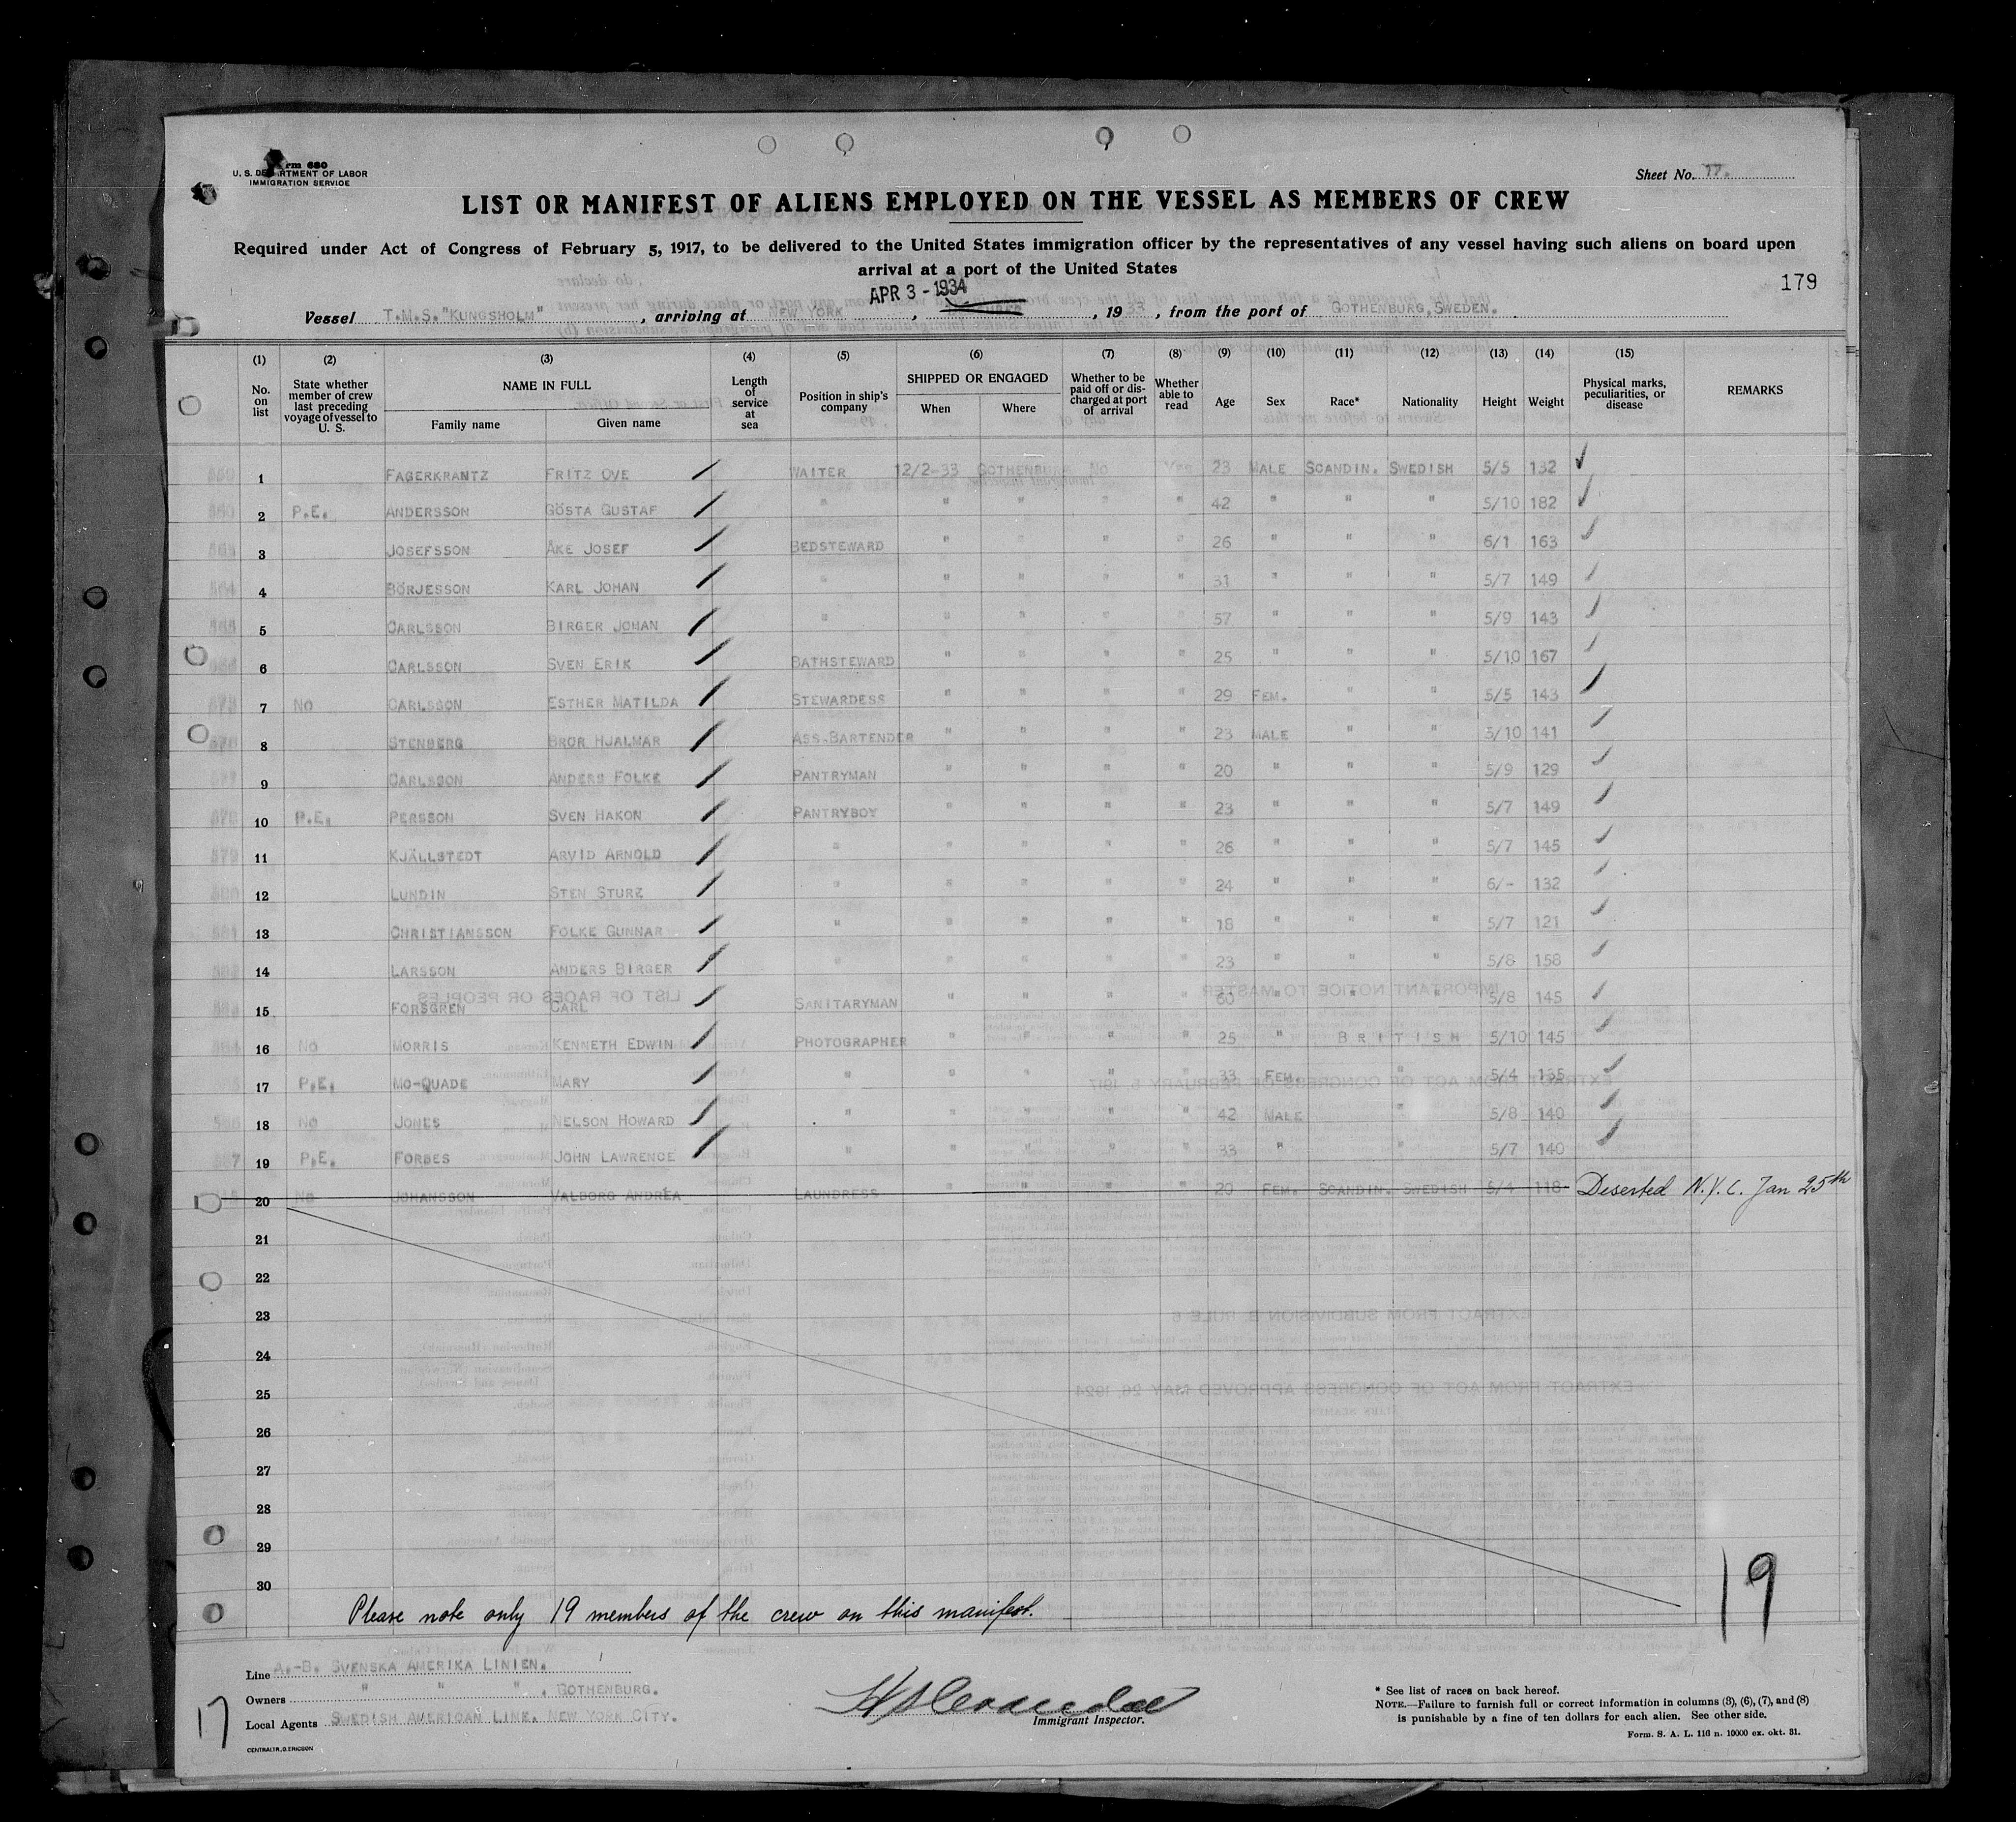 Form 680
U. S. DEPARTMENT OF LABOR
IMMIGRATION SERVICE
Sheet No. 17.
LIST OR MANIFEST OF ALIENS EMPLOYED ON THE VESSEL AS MEMBERS OF CREW
Required under Act of Congress of February 5, 1917, to be delivered to the United States immigration officer by the representatives of any vessel having such aliens on board upon
arrival at a port of the United States
179
APR 3 - 1934
Vessel T.M.S. "KUNGSHOLM", arriving at NEW YORK, , 1933, from the port of GOTHENBURG, SWEDEN.
(1) (2) (3) (4) (5) (6) (7) (8) (9) (10) (11) (12) (13) (14) (15)
No. on list State whether member of crew last preceding voyage of vessel to U. S. NAME IN FULL Family name Given name Length of service at sea Position in ship's company SHIPPED OR ENGAGED When Where Whether to be paid off or discharged at port of arrival Whether able to read Age Sex Race* Nationality Height Weight Physical marks, peculiarities, or disease REMARKS
1 FAGERKRANTZ FRITZ OVE WAITER 12/2-33 GOTHENBURG NO YES 23 MALE SCANDIN. SWEDISH 5/5 132
2 P.E. ANDERSSON GÖSTA GUSTAF " " " " " 42 " " " 5/10 182
3 JOSEFSSON ÅKE JOSEF BEDSTEWARD " " " " 26 " " " 6/1 163
4 BÖRJESSON KARL JOHAN " " " " " 31 " " " 5/7 149
5 CARLSSON BIRGER JOHAN " " " " " 57 " " " 5/9 143
6 CARLSSON SVEN ERIK BATHSTEWARD " " " " 25 " " " 5/10 167
7 NO CARLSSON ESTHER MATILDA STEWARDESS " " " " 29 FEM. " " 5/5 143
8 STENBERG BROR HJALMAR ASS.BARTENDER " " " " 23 MALE " " 5/10 141
9 CARLSSON ANDERS FOLKE PANTRYMAN " " " " 20 " " " 5/9 129
10 P.E. PERSSON SVEN HAKON PANTRYBOY " " " " 23 " " " 5/7 149
11 KJÄLLSTEDT ARVID ARNOLD " " " " " 26 " " " 5/7 145
12 LUNDIN STEN STURE " " " " " 24 " " " 6/- 132
13 CHRISTIANSSON FOLKE GUNNAR " " " " " 18 " " " 5/7 121
14 LARSSON ANDERS BIRGER " " " " " 23 " " " 5/8 158
15 FORSGREN CARL SANITARYMAN " " " " 60 " " " 5/8 145
16 NO MORRIS KENNETH EDWIN PHOTOGRAPHER " " " " 25 " BRITISH 5/10 145
17 P.E. MC-QUADE MARY " " " " " 33 FEM. " 5/4 135
18 NO JONES NELSON HOWARD " " " " " 42 MALE " 5/8 140
19 P.E. FORBES JOHN LAWRENCE " " " " " 33 " " 5/7 140
20 NO JOHANSSON VALBORG ANDRÉA LAUNDRESS " " " " 29 FEM. SCANDIN. SWEDISH 5/4 118 Deserted N.Y.C. Jan 25th
21
22
23
24
25
26
27
28
29
30
Please note only 19 members of the crew on this manifest.
19
Line A.-B. SVENSKA AMERIKA LINIEN.
Owners " " ", GOTHENBURG.
Local Agents SWEDISH AMERICAN LINE, NEW YORK CITY.
17
CENTRALTR, G. ERICSON
Immigrant Inspector.
* See list of races on back hereof.
NOTE.—Failure to furnish full or correct information in columns (3), (6), (7), and (8)
is punishable by a fine of ten dollars for each alien. See other side.
Form. S. A. L. 116 n. 10000 ex. okt. 31.